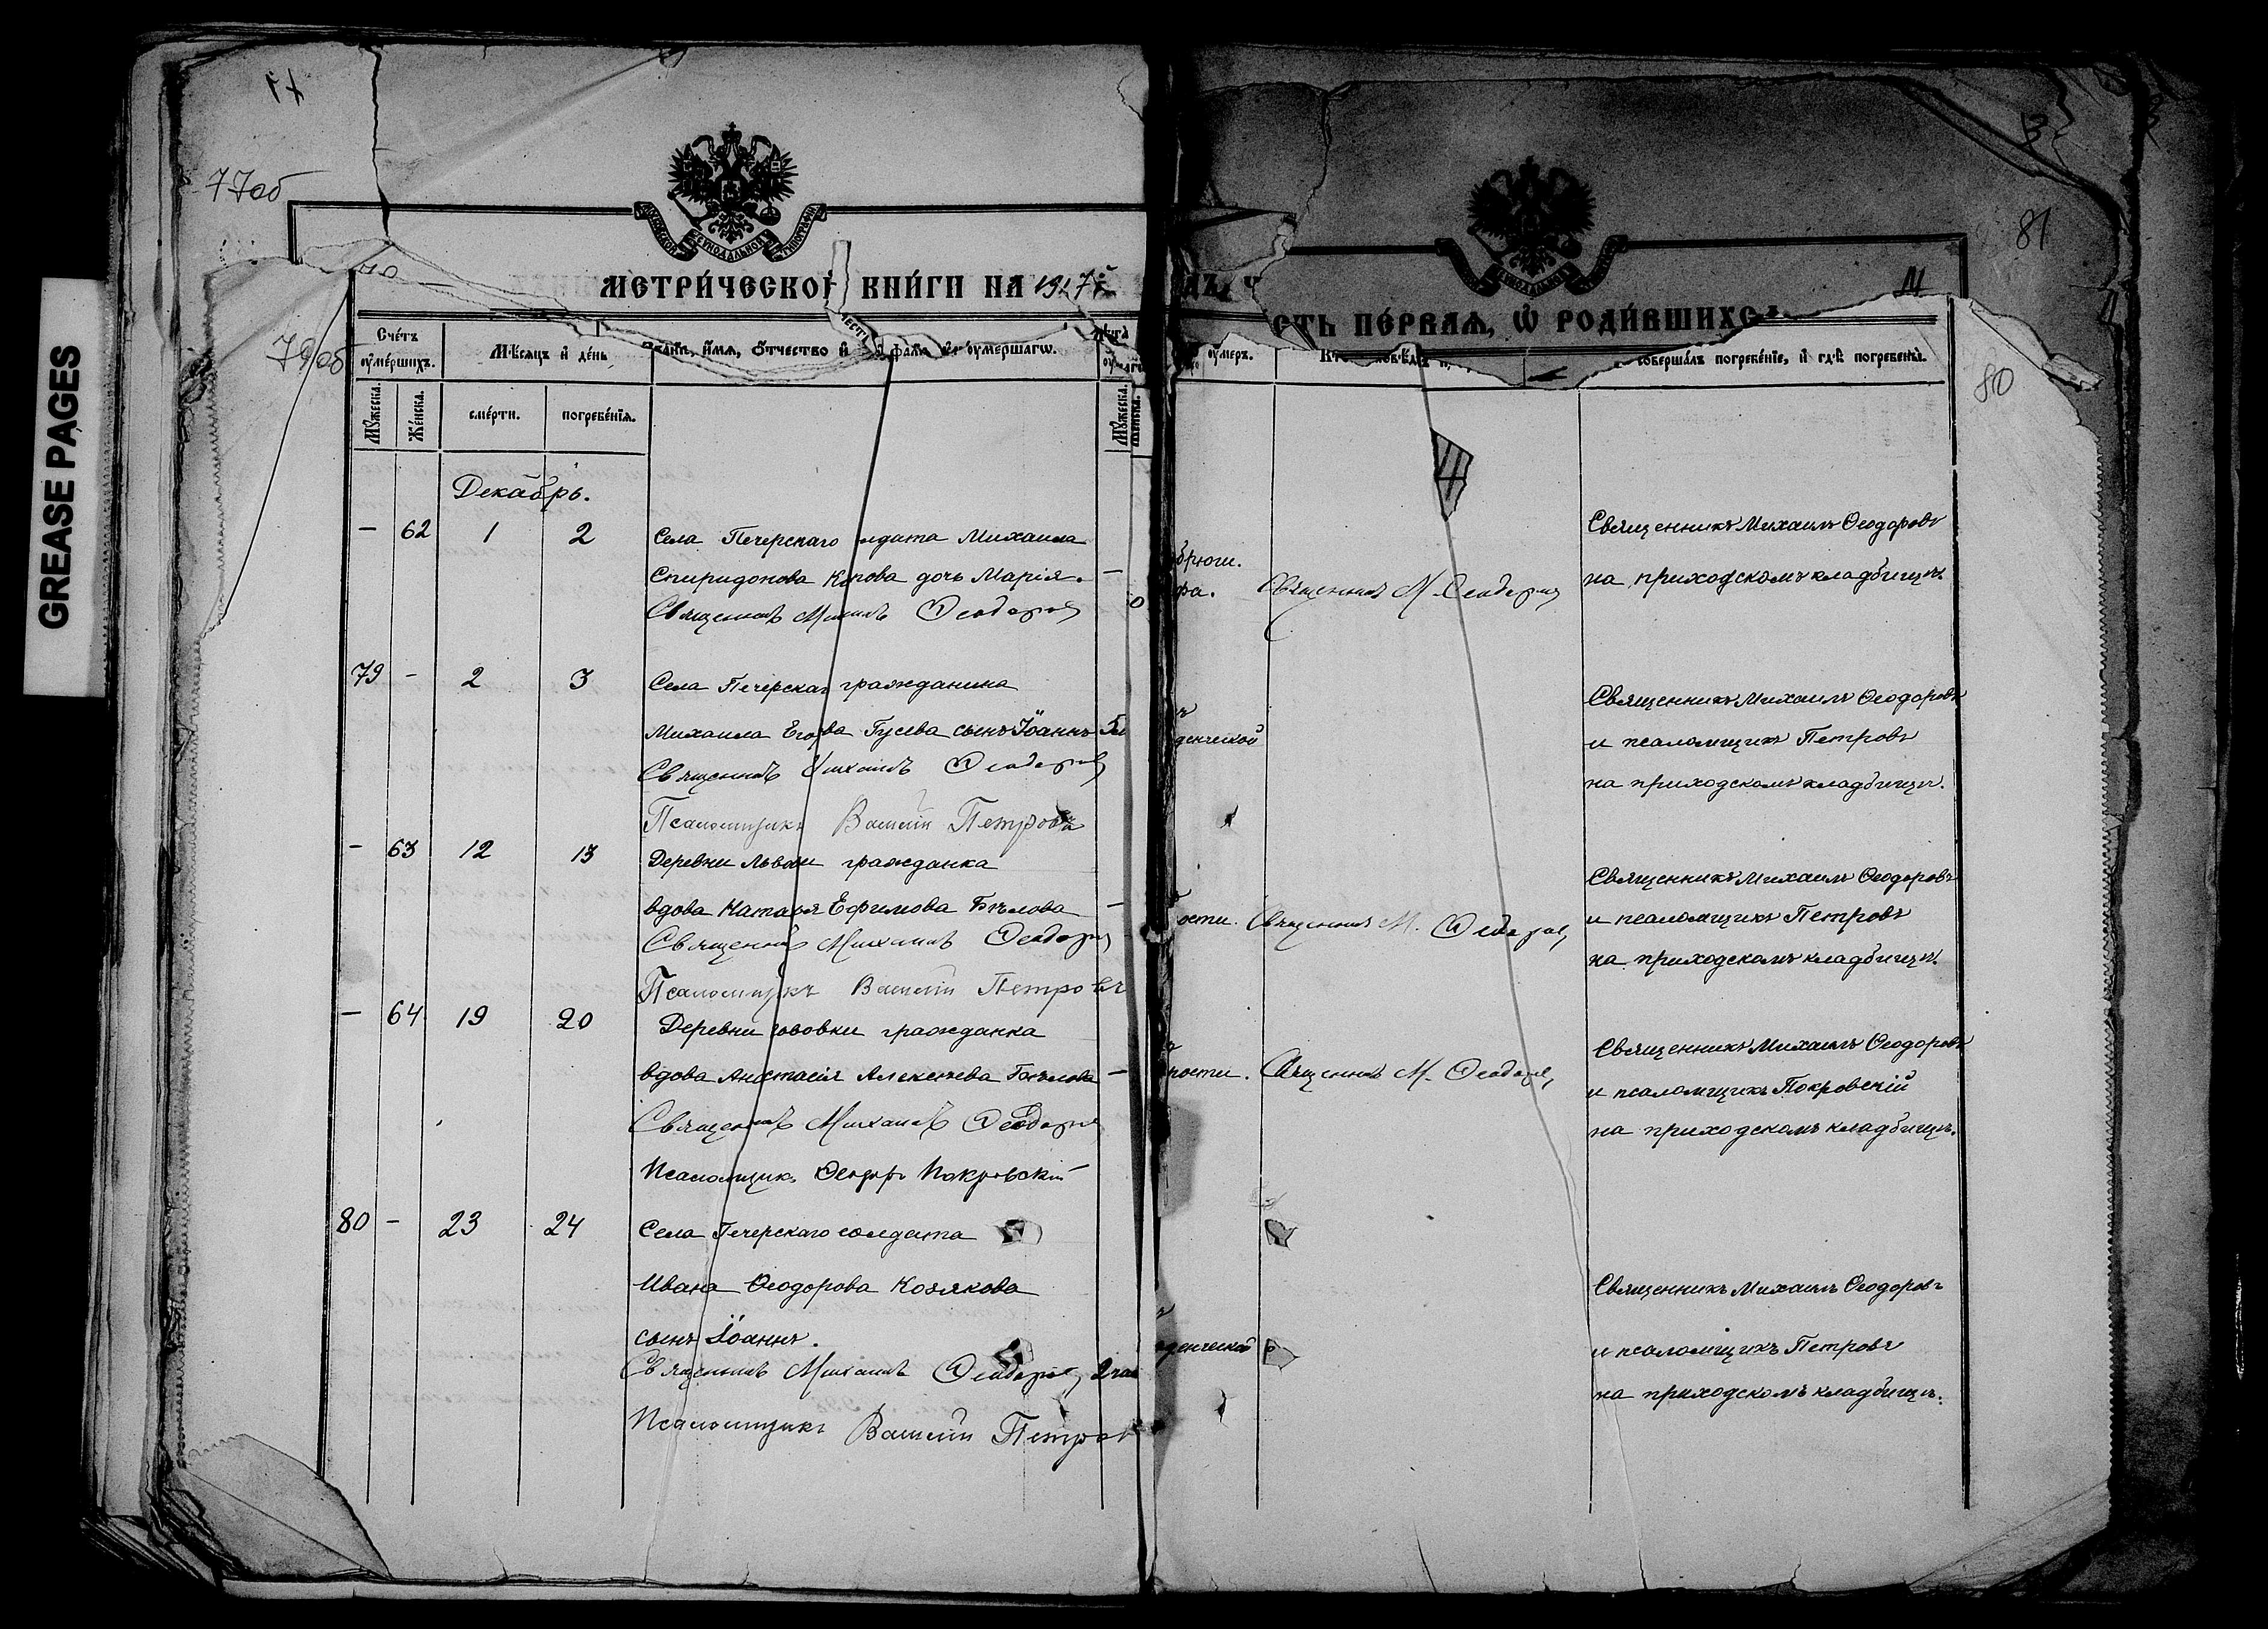 GREASE PAGES
77об
79об
81
80
МОСКОВСКОЙ СѴНОДАЛЬНОЙ ТИПОГРАФІИ
МЕТРИ́ЧЕСКОЙ КНИ́ГИ НА 1917й
СТЬ ПЕ́РВАЯ, Ѡ РОДИ́ВШИХСЯ
Сче́тъ ᲂу҆ме́ршихъ.
Мѣ́сяцъ и҆ де́нь
и҆́мя, ѻ҆́тчество и҆ ᲂу҆ме́ршагѡ.
Лѣта̀
ᲂу҆меръ.
соверша́лъ погребе́нїе, и҆ гдѣ̀ погребены̀.
Мꙋ́жеска.
Же́нска.
сме́рти.
погребе́нїѧ.
Мꙋ́жеска.
Же́нска.
Декабрь.
— 62 1 2 Села Печерскаго Михаила
Спиридонова дочь Марія. —
Священникъ Михаилъ Ѳеодоровъ
Священникъ М. Ѳеодоровъ
Священникъ Михаилъ Ѳеодоровъ
на приходскомъ кладбищѣ.
79 - 2 3 Села Печерскаг гражданина
Михаила Гусева сынъ Іоаннъ
Священникъ Михаилъ Ѳеодоровъ
Псаломщикъ Василій Петровъ
денческой
Священникъ Михаилъ Ѳеодоровъ
и псаломщикъ Петровъ
на приходскомъ кладбищѣ.
— 63 12 13 Деревни гражданка
вдова Наталья Ефимова Бѣлова —
Священникъ Михаилъ Ѳеодоровъ
Псаломщикъ Василій Петровъ
ости. Священникъ М. Ѳеодоровъ
Священникъ Михаилъ Ѳеодоровъ
и псаломщикъ Петровъ
на приходскомъ кладбищѣ.
— 64 19 20 Деревни гражданка
вдова Анастасія Алексѣева Бѣлова —
Священникъ Михаилъ Ѳеодоровъ
Псаломщикъ Ѳеодоръ Покровскій
ости. Священникъ М. Ѳеодоровъ
Священникъ Михаилъ Ѳеодоровъ
и псаломщикъ Покровскій
на приходскомъ кладбищѣ.
80 - 23 24 Села Печерскаго солдата
Ивана Ѳеодорова Козлкова
сынъ Іоаннъ.
Священникъ Михаилъ Ѳеодоровъ
Псаломщикъ Василій Петровъ
денческой
Священникъ Михаилъ Ѳеодоровъ
и псаломщикъ Петровъ
на приходскомъ кладбищѣ.